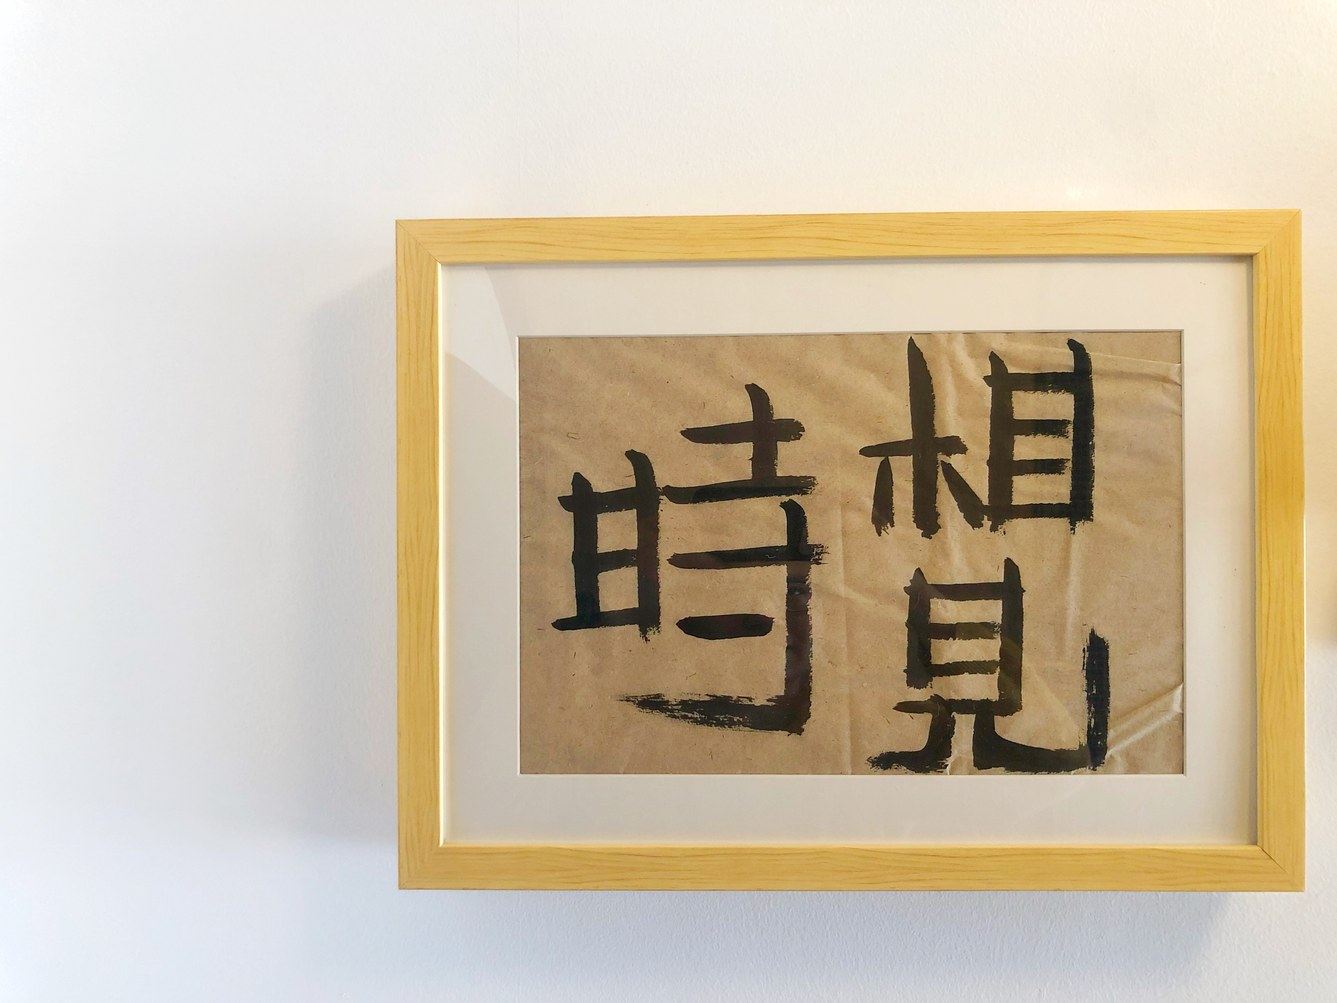 相見
時